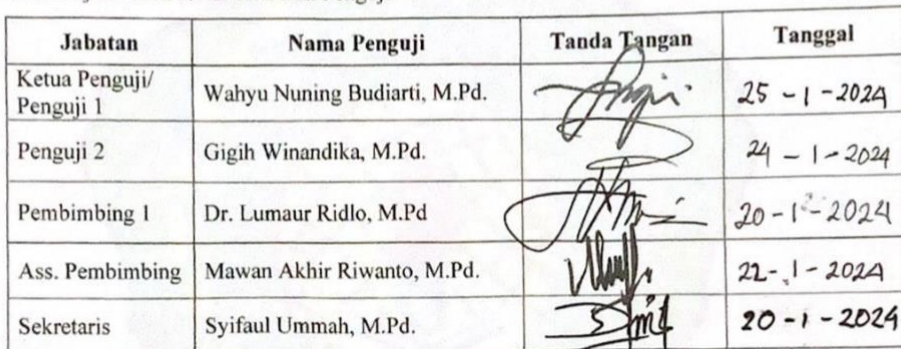 Jabatan Nama Penguji Tanda Tangan Tanggal
Ketua Penguji/
Penguji 1 Wahyu Nuning Budiarti, M.Pd. 25 - 1 - 2024
Penguji 2 Gigih Winandika, M.Pd. 24 - 1 - 2024
Pembimbing 1 Dr. Lumaur Ridlo, M.Pd 20 - 1 - 2024
Ass. Pembimbing Mawan Akhir Riwanto, M.Pd. 22 - 1 - 2024
Sekretaris Syifaul Ummah, M.Pd. 20 - 1 - 2024